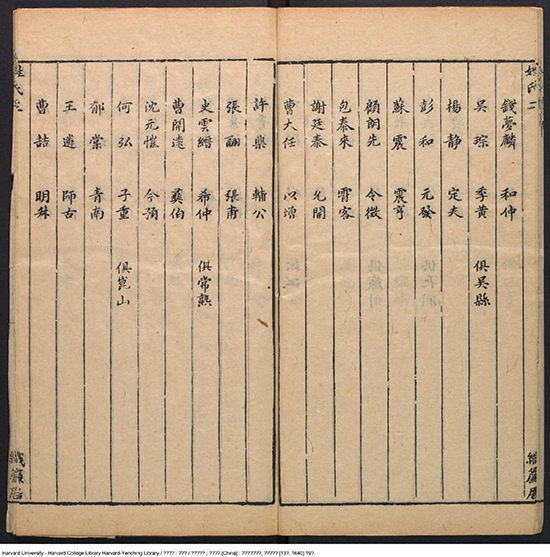 姓氏二
錢夢麟 和仲
吳琮 季黃 俱吳縣
楊静 定夫
彭和 元發
蘇震 震亨
顧詗先 令徵
包泰來 霄客
謝廷泰 允開
曹大任 以增
許樂 輔公
張翮 張甫
史雲縉 希仲 俱常熟
曹開遠 莫伯
沈元愷 令預
何弘 子重 俱崑山
郁棠 青南
王 師古
曹喆 明
姓氏
Harvard University - Harvard College Library Harvard-Yenching Library / ???? : ??? / ????? ; ????.[China] : ???????, ????? [13?, 1640] 19?.